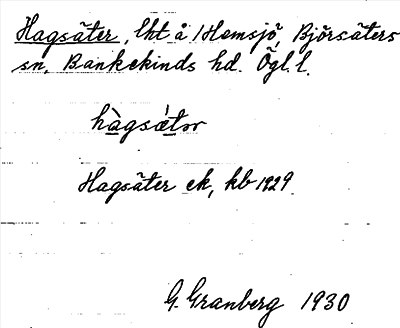 Hagsäter, lht å Hemsjö, Björsäters
sn, Bankekinds hd. Ögl. l.
hàgsǽtər
Hagsäter ek, kb 1929.
G. Granberg 1930